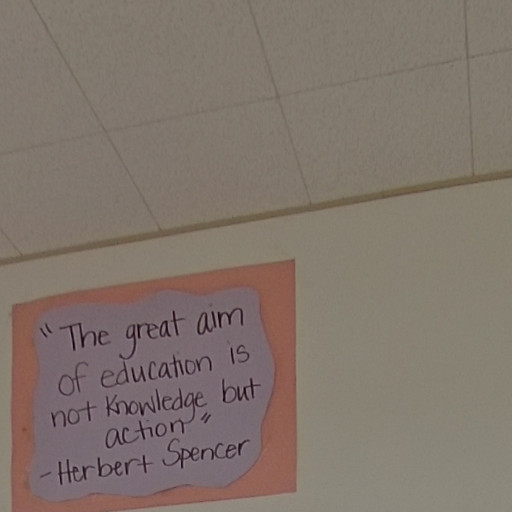 "The great aim
of education is
not knowledge but
action"
-Herbert Spencer